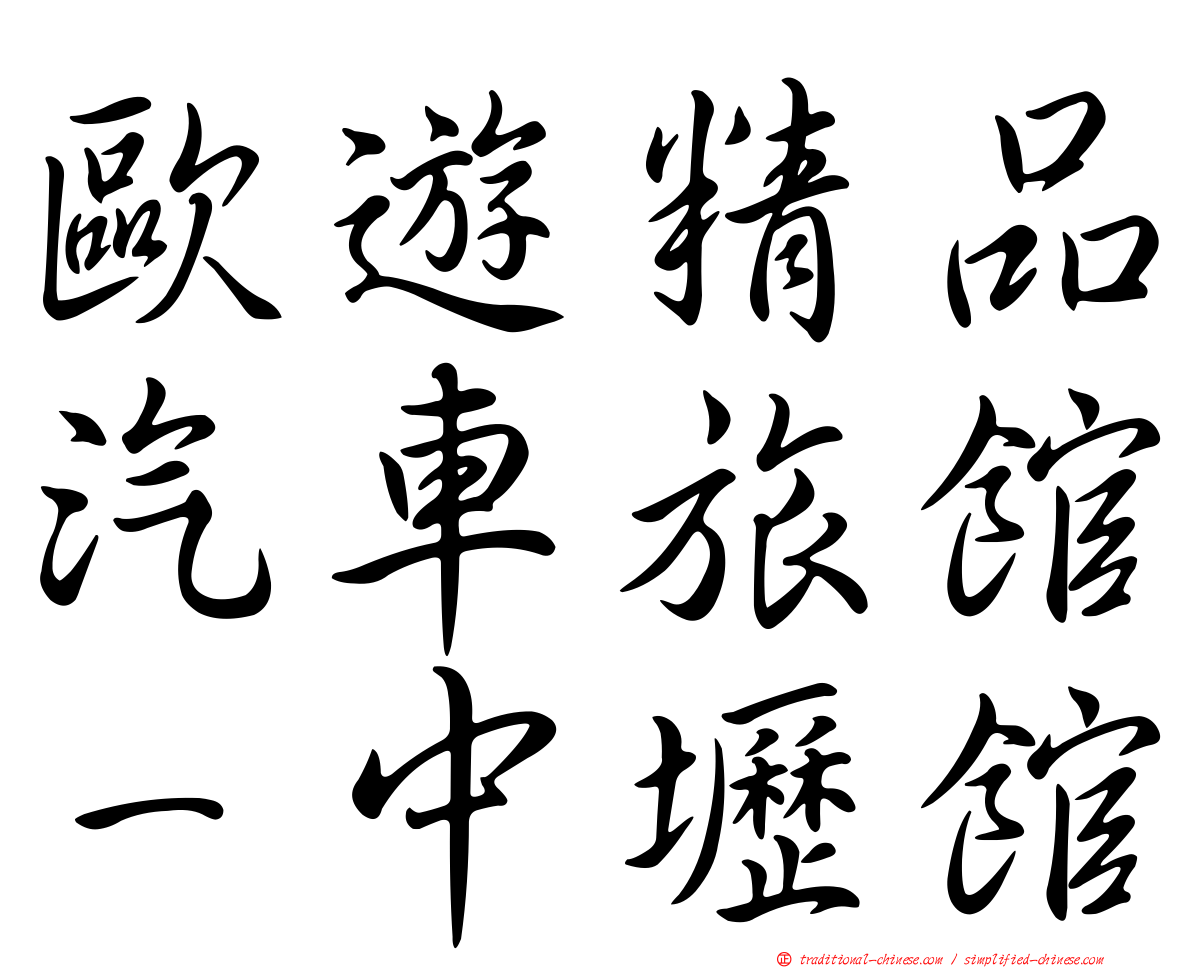 歐遊精品
汽車旅館
一中壢館
㊣ traditional-chinese.com / simplified-chinese.com